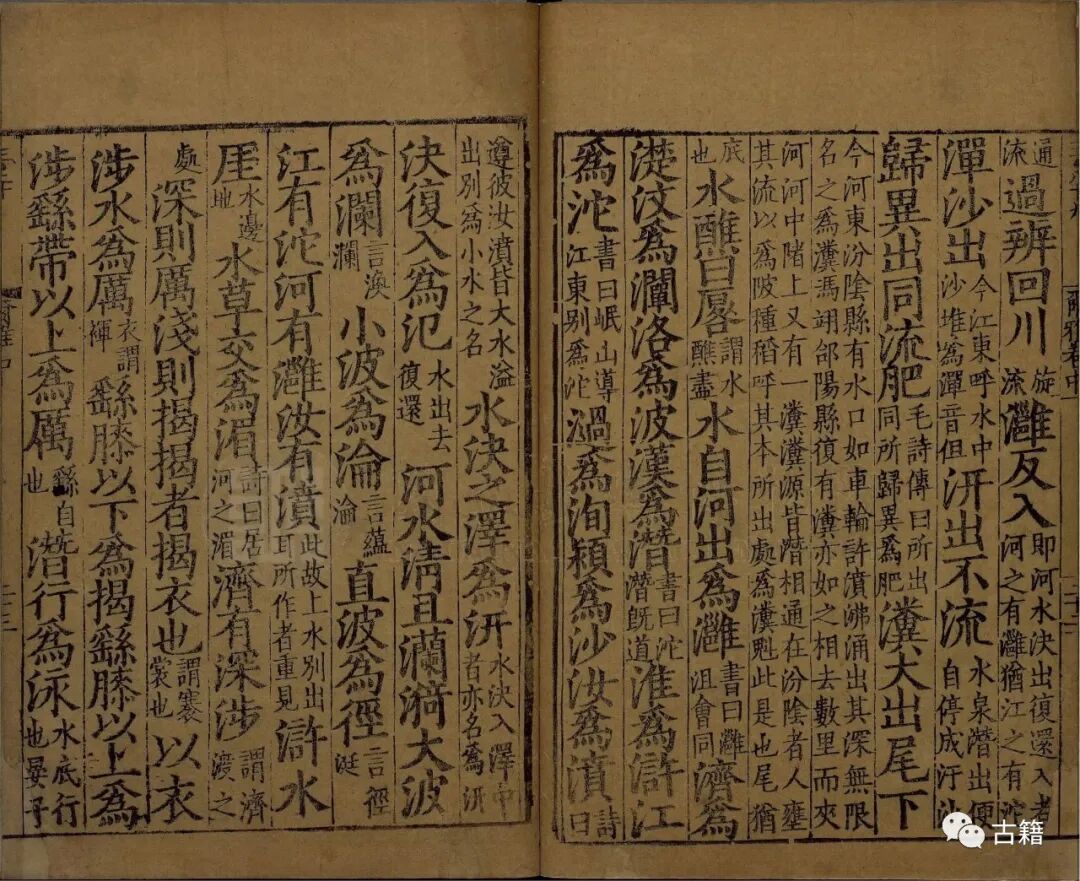 通流過辨回川旋流灉反入即河水決出復還入者河之有灉猶江之有沱
潬沙出今江東呼水中沙堆爲潬音但汧出不流水泉潛出便自停成汙沙
歸異出同流肥毛詩傳曰所出同所歸異爲肥瀵大出尾下
今河東汾陰縣有水口如車輪許濆沸涌出其深無限
名之爲瀵馮翊郃陽縣復有瀵亦如之相去數里而夾
河河中陼上又有一瀵瀵源皆潛相通在汾陰者人壅
其流以爲陂種稻呼其本所出處爲瀵魁此是也尾猶
底也水醮曰厬謂水醮盡水自河出爲灉書曰灉沮會同濟爲
濋汶爲灛洛爲波漢爲潛書曰沱潛旣道淮爲滸江
爲沱書曰岷山導江東別爲沱濄爲洵潁爲沙汝爲濆詩曰
爾雅卷中
遵彼汝濆皆大水溢出別爲小水之名水決之澤爲汧水決入澤中者亦名爲汧
決復入爲氾水出去復還河水清且瀾漪大波
爲瀾言渙瀾小波爲淪言蘊淪直波爲徑言徑涏
江有沱河有灉汝有濆此故上水別出耳所作者重見滸水
厓水邊地水草交爲湄詩曰居河之湄濟有深涉謂濟渡之
處深則厲淺則揭揭者揭衣也謂褰裳也以衣
涉水爲厲衣謂褌繇膝以下爲揭繇膝以上爲
涉繇帶以上爲厲繇自也潛行爲泳水底行也晏子
古籍